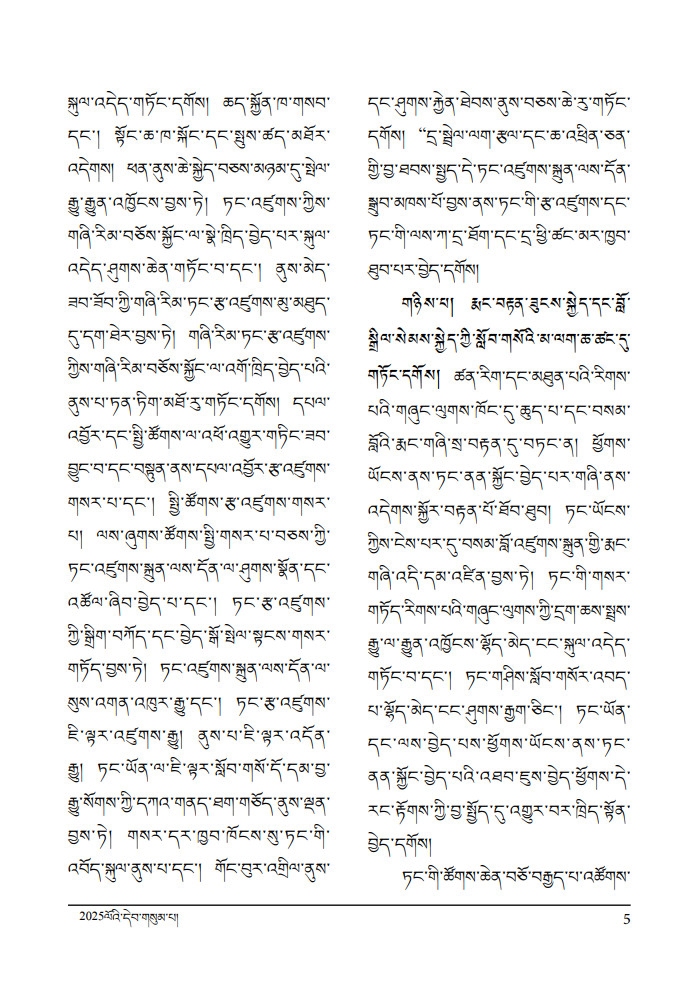 སྐུལ་འདེད་གཏོང་དགོས། ཆད་སྐྱོན་ཁ་གསབ་
དང་། སྟོང་ཆ་ཁ་སྐོང་དང་སྤུས་ཚད་མཐོར་
འདེགས། ཕན་ནུས་ཆེ་སྐྱེད་བཅས་མཉམ་དུ་སྤེལ་
རྒྱུ་རྒྱུན་འཁྱོངས་བྱས་ཏེ། ཏང་འཛུགས་ཀྱིས་
གཞི་རིམ་བཅོས་སྐྱོང་ལ་སྣེ་ཁྲིད་བྱེད་པར་སྐུལ་
འདེད་ཤུགས་ཆེན་གཏོང་བ་དང་། ནུས་མེད་
ཟབ་ཟོབ་ཀྱི་གཞི་རིམ་ཏང་རྩ་འཛུགས་མུ་མཐུད་
དུ་དག་ཐེར་བྱས་ཏེ། གཞི་རིམ་ཏང་རྩ་འཛུགས་
ཀྱིས་གཞི་རིམ་བཅོས་སྐྱོང་ལ་འགོ་ཁྲིད་བྱེད་པའི་
ནུས་པ་ཏན་ཏིག་མཐོ་རུ་གཏོང་དགོས། དཔལ་
འབྱོར་དང་སྤྱི་ཚོགས་ལ་འཕོ་འགྱུར་གཏིང་ཟབ་
བྱུང་བ་དང་བསྟུན་ནས་དཔལ་འབྱོར་རྩ་འཛུགས་
གསར་པ་དང་། སྤྱི་ཚོགས་རྩ་འཛུགས་གསར་
པ། ལས་ཞུགས་ཚོགས་སྤྱི་གསར་པ་བཅས་ཀྱི་
ཏང་འཛུགས་སྐྲུན་ལས་དོན་ལ་ཤུགས་སྣོན་དང་
འཚོལ་ཞིབ་བྱེད་པ་དང་། ཏང་རྩ་འཛུགས་
ཀྱི་སྒྲིག་བཀོད་དང་བྱེད་སྒོ་སྤེལ་སྟངས་གསར་
གཏོད་བྱས་ཏེ། ཏང་འཛུགས་སྐྲུན་ལས་དོན་ལ་
སུས་འགན་འཁུར་རྒྱུ་དང་། ཏང་རྩ་འཛུགས་
ཇི་ལྟར་འཛུགས་རྒྱུ། ནུས་པ་ཇི་ལྟར་འདོན་
རྒྱུ། ཏང་ཡོན་ལ་ཇི་ལྟར་སློབ་གསོ་དོ་དམ་བྱ་
རྒྱུ་སོགས་ཀྱི་དཀའ་གནད་ཐག་གཅོད་ནུས་ལྡན་
བྱས་ཏེ། གསར་དར་ཁྱབ་ཁོངས་སུ་ཏང་གི་
འབོད་སྐུལ་ནུས་པ་དང་། གོང་བུར་འགྲིལ་ནུས་
དང་ཤུགས་རྐྱེན་ཐེབས་ནུས་བཅས་ཆེ་རུ་གཏོང་
དགོས། “དྲ་སྦྲེལ་ལག་རྩལ་དང་ཆ་འཕྲིན་ཅན་
གྱི་བྱ་ཐབས་སྤྱད་དེ་ཏང་འཛུགས་སྐྲུན་ལས་དོན་
སྒྲུབ་མཁས་པོ་བྱས་ནས་ཏང་གི་རྩ་འཛུགས་དང་
ཏང་གི་ལས་ཀ་དྲ་ཐོག་དང་དྲ་ཕྱི་ཚང་མར་ཁྱབ་
ཐུབ་པར་བྱེད་དགོས།
གཉིས་པ། རྨང་བརྟན་ཟུངས་སྐྱེད་དང་བློ་
སྒྲིལ་སེམས་སྐྱེད་ཀྱི་སློབ་གསོའི་མ་ལག་ཆ་ཚང་དུ་
གཏོང་དགོས། ཚན་རིག་དང་མཐུན་པའི་རིགས་
པའི་གཞུང་ལུགས་ཁོང་དུ་ཆུད་པ་དང་བསམ་
བློའི་རྨང་གཞི་སྲ་བརྟན་དུ་བཏང་ན། ཕྱོགས་
ཡོངས་ནས་ཏང་ནན་སྐྱོང་བྱེད་པར་གཞི་ནས་
འདེགས་སྐྱོར་བརྟན་པོ་ཐོབ་ཐུབ། ཏང་ཡོངས་
ཀྱིས་ངེས་པར་དུ་བསམ་བློ་འཛུགས་སྐྲུན་གྱི་རྨང་
གཞི་འདི་དམ་འཛིན་བྱས་ཏེ། ཏང་གི་གསར་
གཏོད་རིགས་པའི་གཞུང་ལུགས་ཀྱི་དྲག་ཆས་སྤྲས་
རྒྱུ་ལ་རྒྱུན་འཁྱོངས་ལྷོད་མེད་ངང་སྐུལ་འདེད་
གཏོང་བ་དང་། ཏང་གཤིས་སློབ་གསོར་འབད་
པ་ལྷོད་མེད་ངང་ཤུགས་རྒྱག་ཅིང་། ཏང་ཡོན་
དང་ལས་བྱེད་པས་ཕྱོགས་ཡོངས་ནས་ཏང་
ནན་སྐྱོང་བྱེད་པའི་འཐབ་ཇུས་བྱེད་ཕྱོགས་དེ་
རང་རྟོགས་ཀྱི་བྱ་སྤྱོད་དུ་འགྱུར་བར་ཁྲིད་སྟོན་
བྱེད་དགོས།
ཏང་གི་ཚོགས་ཆེན་བཅོ་བརྒྱད་པ་འཚོགས་
2025ལོའི་དེབ་གསུམ་པ།
5